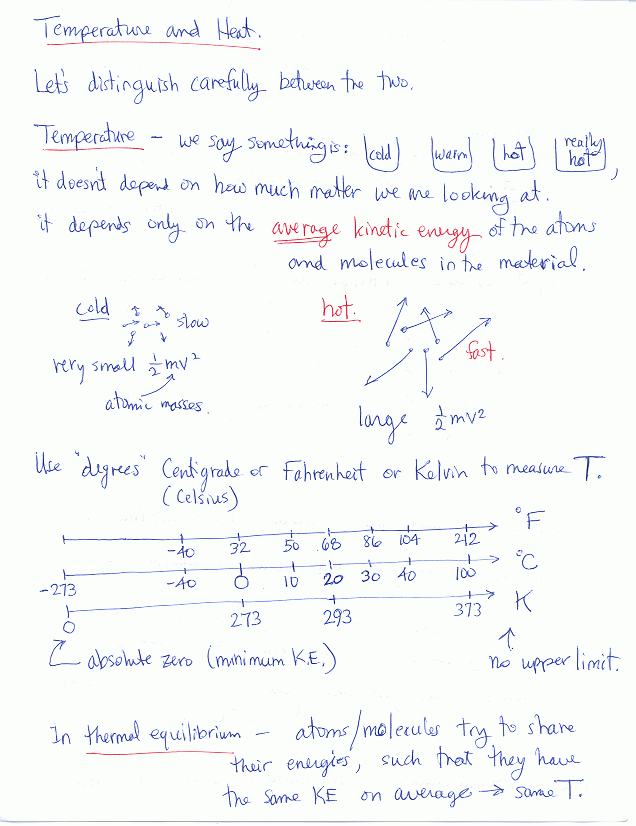 Temperature and Heat.
Let's distinguish carefully between the two.
Temperature – we say something is: cold warm hot really hot,
it doesn't depend on how much matter we are looking at.
it depends only on the average kinetic energy of the atoms
and molecules in the material.
cold slow
very small ½mv²
atomic masses.
hot.
fast.
large ½mv²
Use "degrees" Centigrade or Fahrenheit or Kelvin to measure T.
(Celsius)
-40 32 50 68 86 104 212 °F
-273 -40 0 10 20 30 40 100 °C
0 273 293 373 K
absolute zero (minimum K.E.) no upper limit.
In thermal equilibrium – atoms/molecules try to share
their energies, such that they have
the same KE on average → same T.